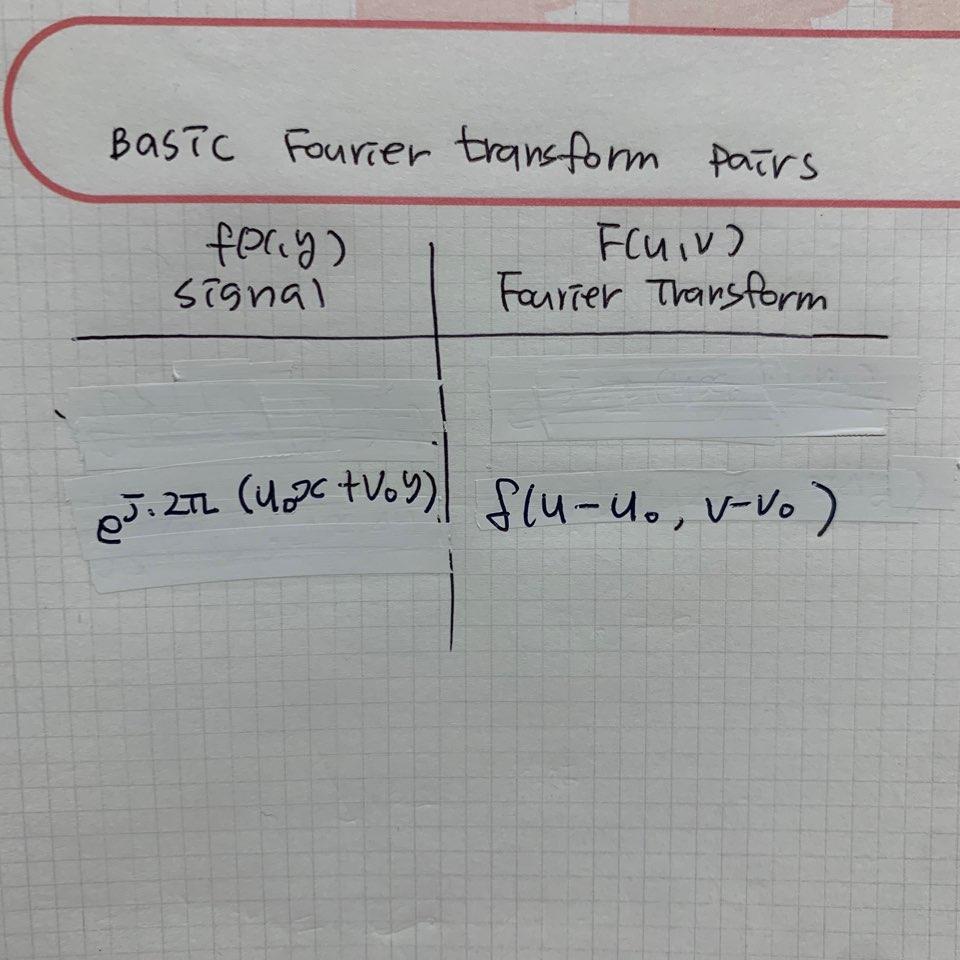 Basic Fourier transform pairs
f(x,y)
signal
F(u,v)
Fourier Transform
e^j·2π(u₀x+v₀y)
δ(u-u₀, v-v₀)